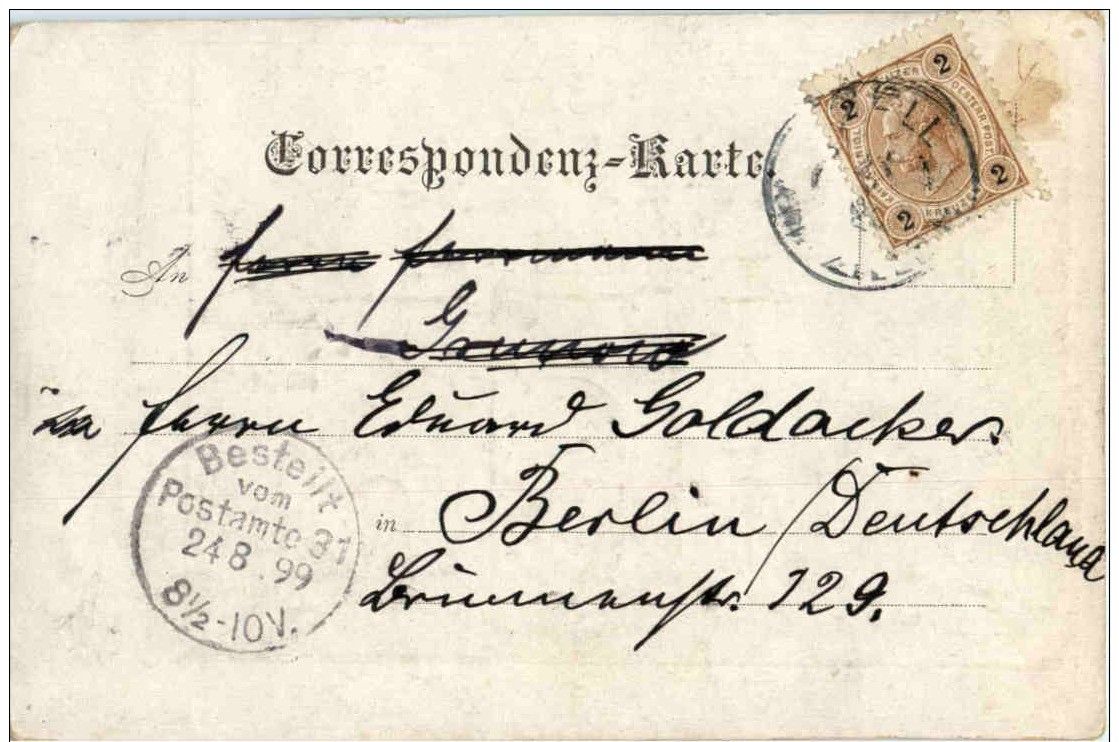 Correspondenz-Karte.
An Herrn Hermann
Herrn Eduard Goldacker.
in Berlin / Deutschland
Brunnenstr. 129.
Bestellt
vom
Postamte 31
24 8. 99
8½-10V.
2 2 2 2
KREUZER
OESTERR. POST
ZELL